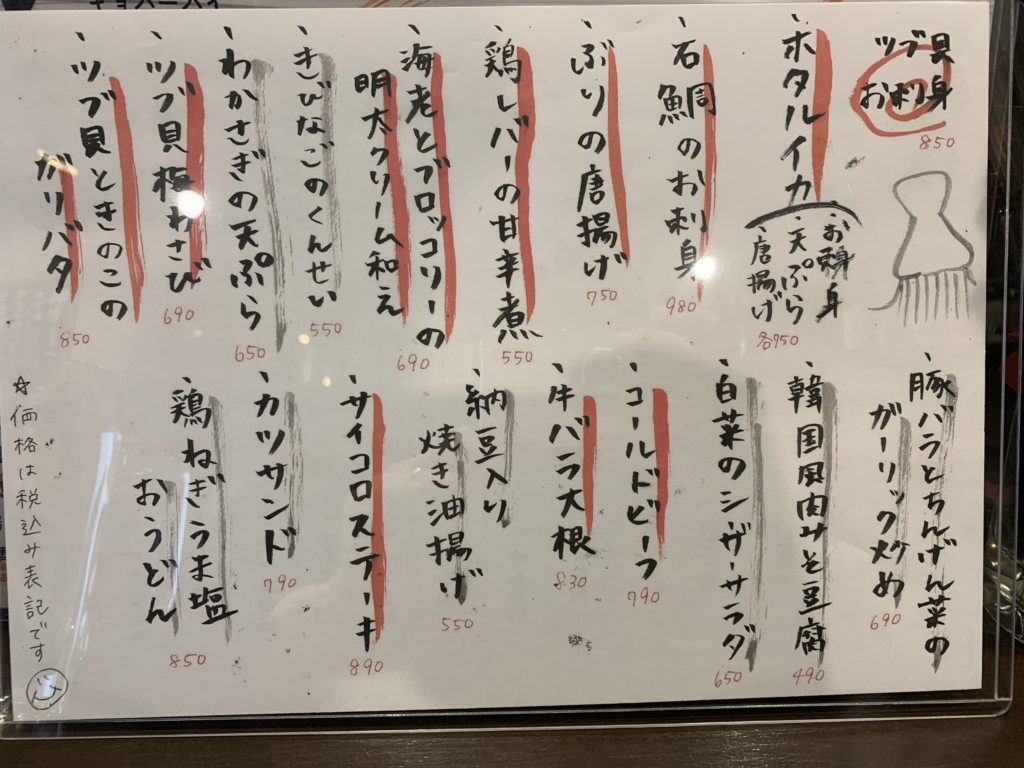 ツブ貝
お刺身
850
ホタルイカ
お刺身
天ぷら
唐揚げ
各750
石鯛のお刺身
980
ぶりの唐揚げ
750
鶏レバーの甘辛煮
550
海老とブロッコリーの
明太クリーム和え
690
きびなごのくんせい
550
わかさぎの天ぷら
650
ツブ貝梅わさび
690
ツブ貝ときのこの
ガリバタ
850
豚バラとちんげん菜の
ガーリック炒め
690
韓国風肉みそ豆腐
490
白菜のシーザーサラダ
650
コールドビーフ
790
牛バラ大根
830
納豆入り
焼き油揚げ
550
サイコロステーキ
890
カツサンド
790
鶏ねぎうま塩
おうどん
850
☆価格は税込み表記です